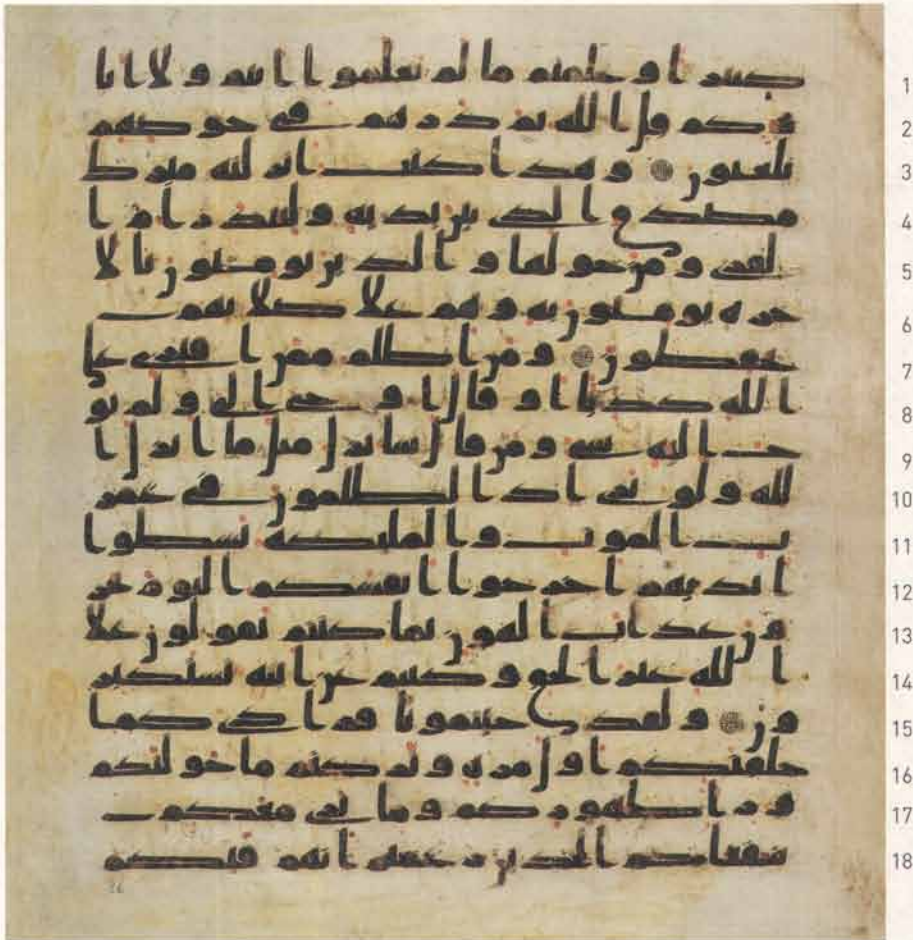 كثيرا وعلمتم ما لم تعلموا انتم ولا ابا 1
ؤكم قل الله ثم ذرهم في خوضهم 2
يلعبون وهذا كتب انزلنه مبرك 3
مصدق الذي بين يديه ولتنذر ام ا 4
لقرى ومن حولها والذين يومنون بالا 5
خرة يومنون به وهم علا صلاتهم 6
يحفظون ومن اظلم ممن افترى على 7
الله كذبا او قال اوحي الي ولم يو 8
ح اليه شي ومن قال سانزل مثل ما انزل ا 9
لله ولو ترى اذ الظلمون في غمر 10
ت الموت والملئكة بسطوا 11
ايديهم اخرجوا انفسكم اليوم تجز 12
ون عذاب الهون بما كنتم تقولون علا 13
الله غير الحق وكنتم عن ايته تستكبر 14
ون ولقد جئتمونا فردى كما 15
خلقنكم اول مرة وتركتم ما خولنكم 16
ورا ظهوركم وما نرى معكم 17
شفعاكم الذين زعمتم انهم فيكم 18